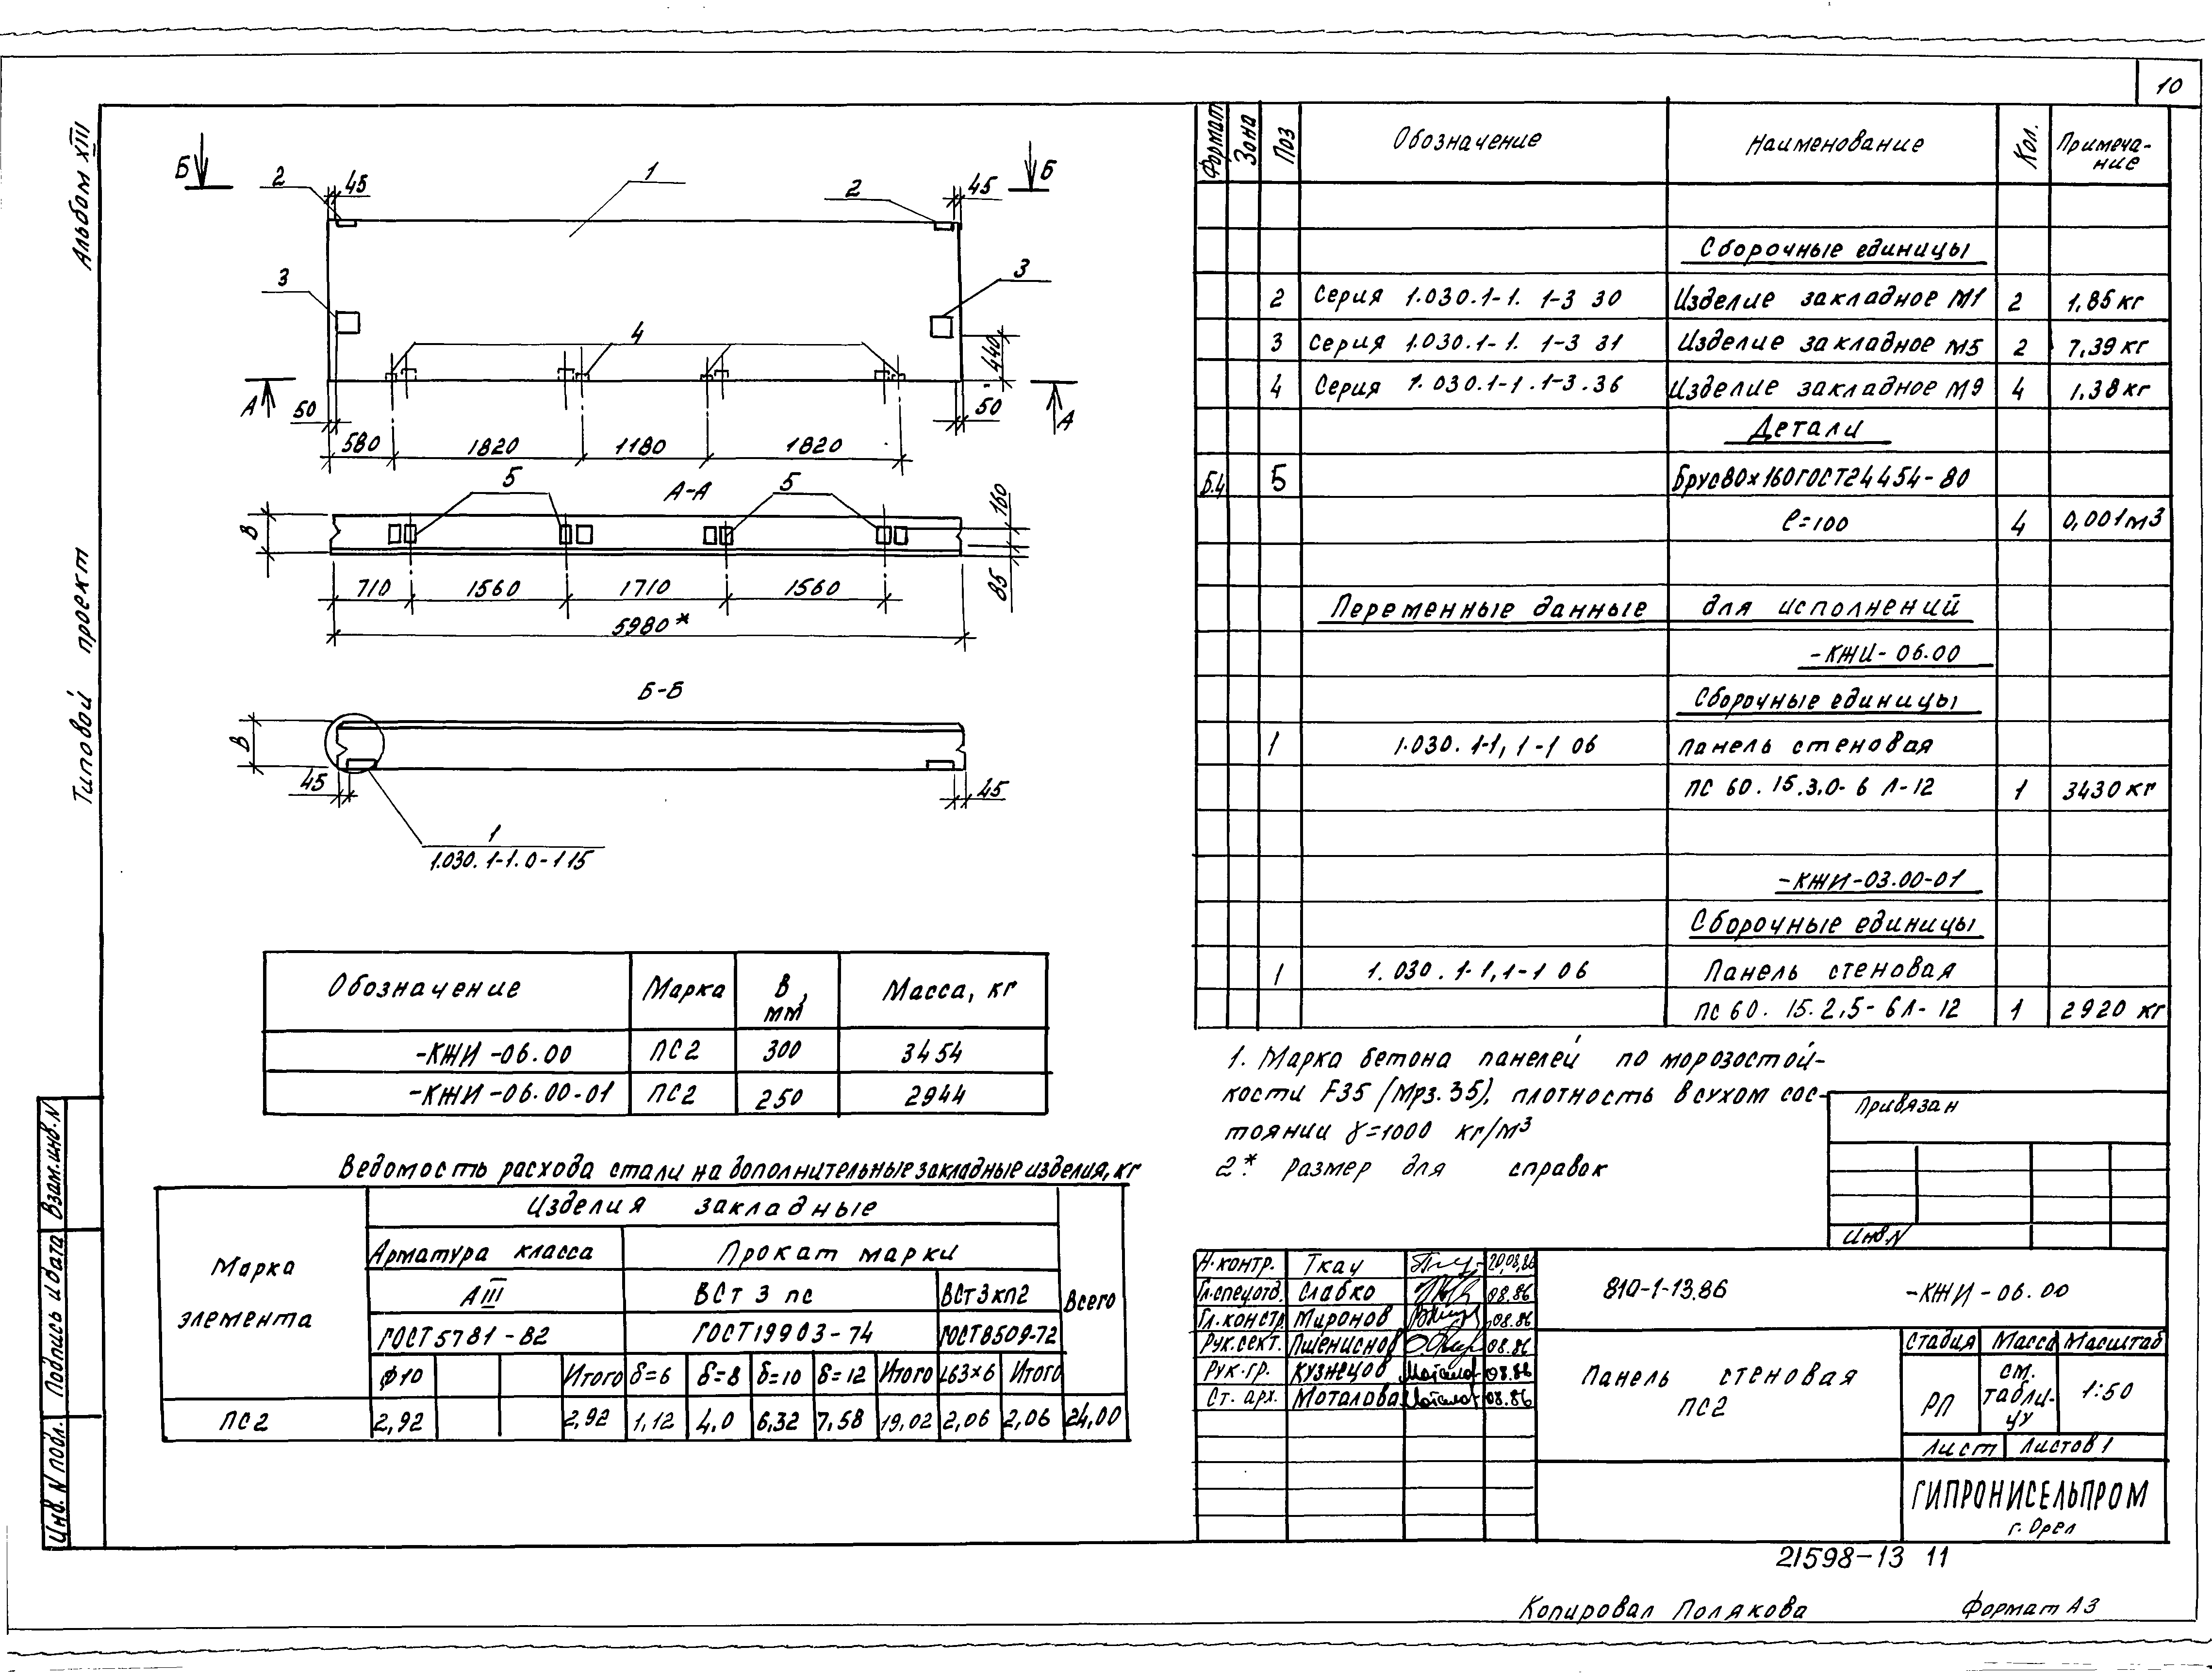 10
Альбом XIII
Типовой проект
Взам.инв.N
Подпись и дата
Инв. N подл.
Б
Б
2
45
1
2
45
3
3
4
440
А
А
50
50
580
1820
1180
1820
5
А-А
5
В
160
85
710
1560
1710
1560
5980*
Б-Б
В
45
45
1
1.030.1-1.0-115
Обозначение Марка В, мм Масса, кг
-КЖИ-06.00 ПС2 300 3454
-КЖИ-06.00-01 ПС2 250 2944
Ведомость расхода стали на дополнительные закладные изделия, кг
Марка элемента
Изделия закладные
Всего
Арматура класса Прокат марки
АIII ВСт 3 пс ВСт3кп2
ГОСТ 5781-82 ГОСТ19903-74 ГОСТ8509-72
ϕ10 Итого δ=6 δ=8 δ=10 δ=12 Итого L63×6 Итого
ПС2 2,92 2,92 1,12 4,0 6,32 7,58 19,02 2,06 2,06 24,00
Формат Зона Поз Обозначение Наименование Кол. Примеча-
ние
Сборочные единицы
2 Серия 1.030.1-1. 1-3 30 Изделие закладное М1 2 1,85 кг
3 Серия 1.030.1-1. 1-3 31 Изделие закладное М5 2 7,39 кг
4 Серия 1.030.1-1.1-3.36 Изделие закладное М9 4 1,38 кг
Детали
Б.4 5 Брус80×160ГОСТ24454-80
ℓ=100 4 0,001м3
Переменные данные для исполнений
-КЖИ-06.00
Сборочные единицы
1 1.030.1-1,1-1 06 Панель стеновая
ПС 60.15.3,0-6 Л-12 1 3430 кг
-КЖИ-03.00-01
Сборочные единицы
1 1.030.1-1,1-1 06 Панель стеновая
ПС 60.15.2,5-6Л-12 1 2920 кг
1. Марка бетона панелей по морозостой-
кости F35 (Мрз.35), плотность в сухом сос-
тоянии γ=1000 кг/м3
2* размер для справок
Привязан
Инв.N
Н.контр. Ткач 20.08.86
Гл.спец.отд. Слабко 08.86
Гл.констр. Миронов 08.86
Рук.сект. Пшениснов 08.86
Рук.гр. Кузнецов 08.86
Ст. арх. Моталова 08.86
810-1-13.86 -КЖИ-06.00
Панель стеновая
ПС2
Стадия Масса Масштаб
РП см. табли-
цу 1:50
Лист Листов 1
ГИПРОНИСЕЛЬПРОМ
г. Орел
21598-13 11
Копировал Полякова Формат А3